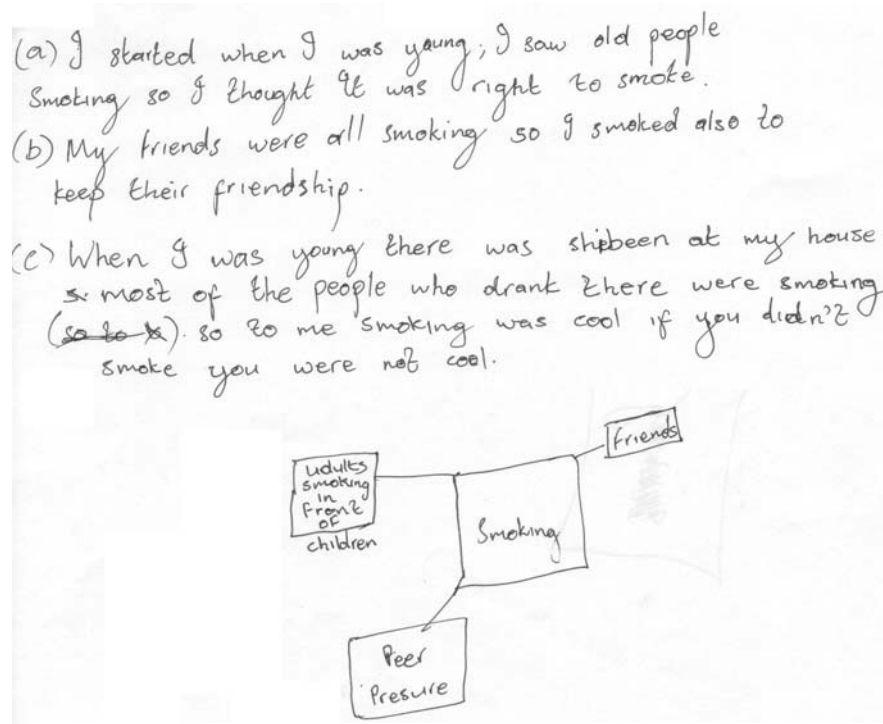 (a) I started when I was young; I saw old people
Smoking so I thought It was right to smoke.
(b) My friends were all smoking so I smoked also to
keep their friendship.
(c) When I was young there was shibeen at my house
most of the people who drank there were smoking
(so to) so to me smoking was cool if you didn't
smoke you were not cool.
friends
udults
smoking
in
front
of
children
Smoking
Peer
Presure